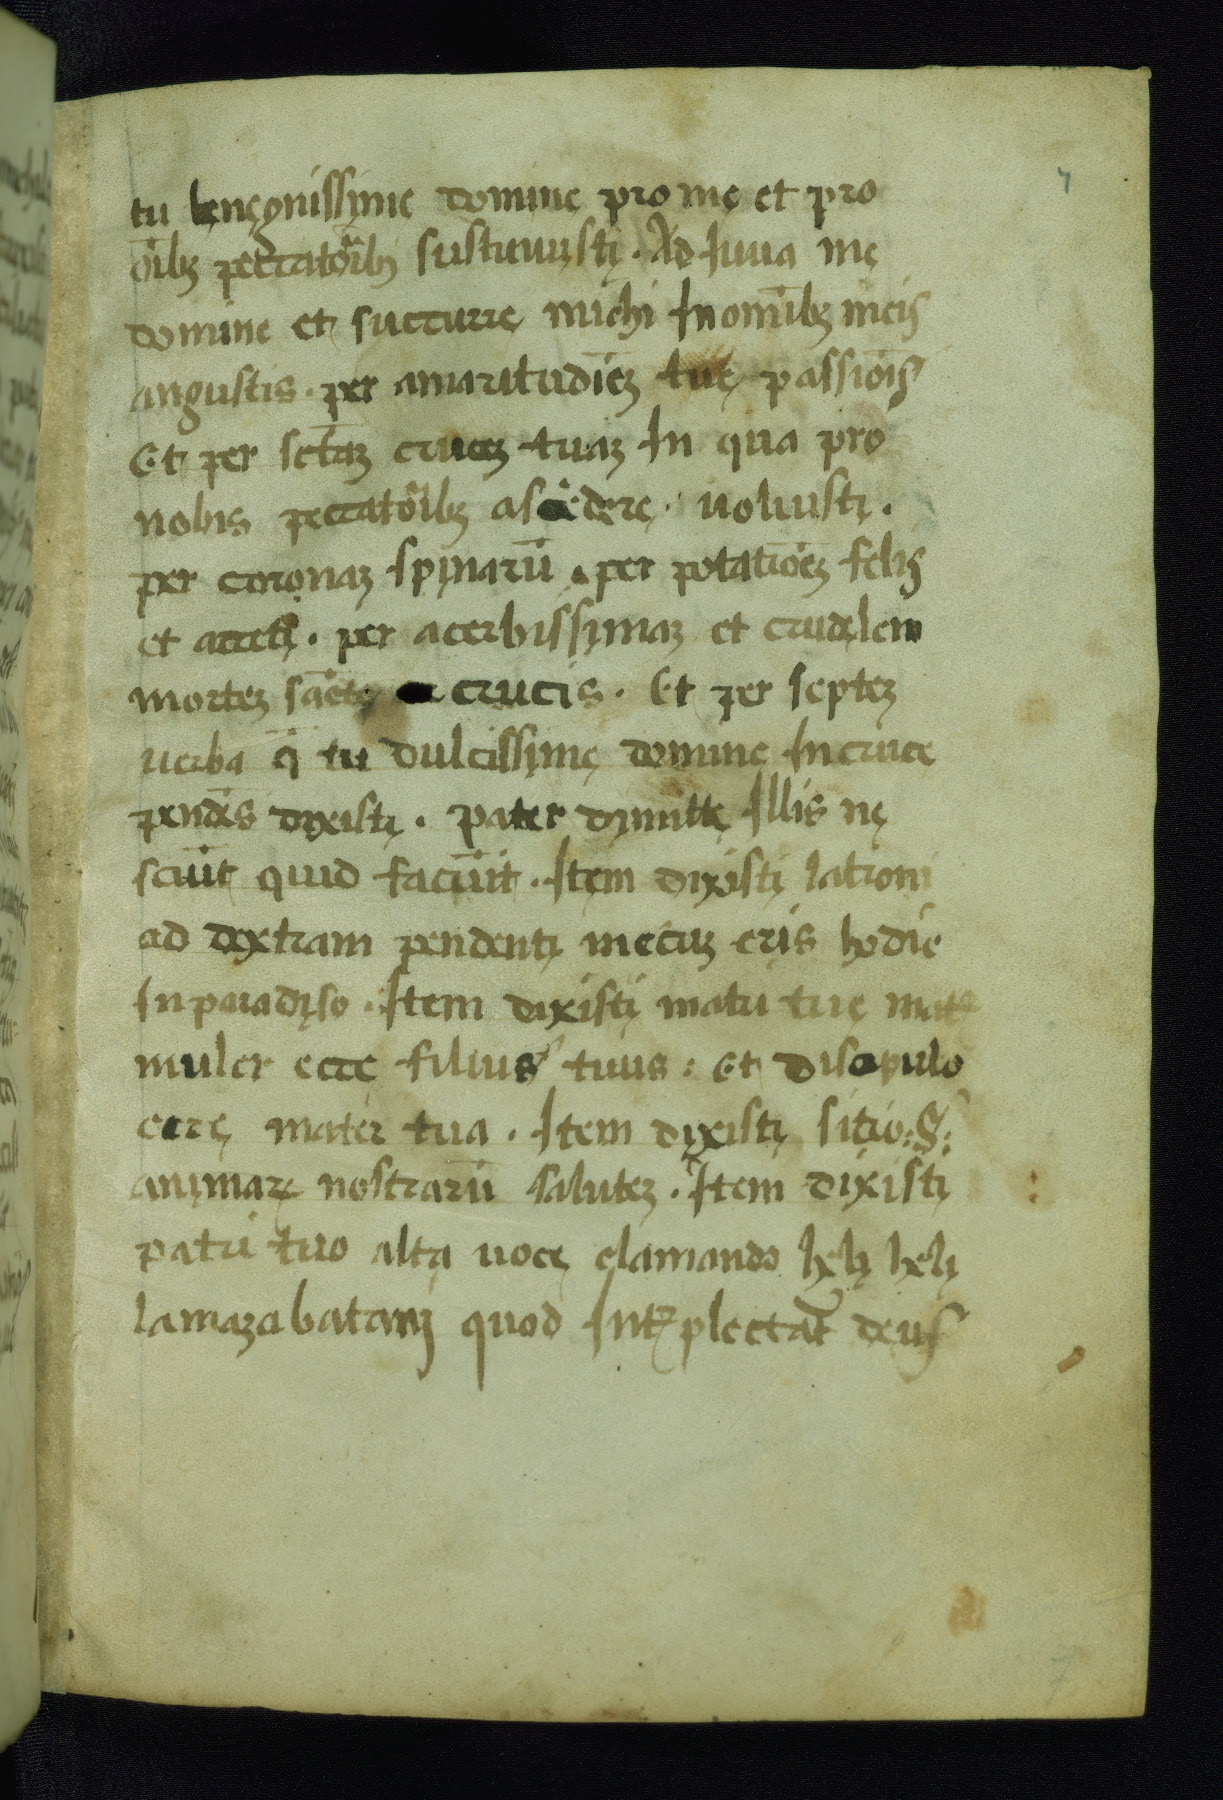 7
tu bęnęgnissįmę domine pro mę et pro
oı̄bꝫ peccatoı̄bꝫ sustinuįstį. Ad Iuua mę
domine et succurrę michi In omı̄bꝫ meis
angustis. per amaritudı̄eꝫ tuę passiōis
Et per sctāꝫ cruceꝫ tuaꝫ In qua pro
nobis peccatoı̄bꝫ ascēdere. uoluistį.
per coronaꝫ spįnarū. per potatiōeꝫ felis
et accetį. per acerbissįmaꝫ et crudęlem
morteꝫ sāctę crucis. Et per septeꝫ
uerba q̄ tu dulcissįmę domine In cruce
pendēs dįxistį. pater dįmittę Illis nę
sciūt quid faciūt. Itęm dixistį latroni
ad dextram pendentį mecuꝫ erįs hodie
In paradįso. Item dixistį matri tuę
muler ecce filius tuus. Et discipulo
eccę mater tua. Item dįxistį sitio: S:
anįmarꝫ nostrarū saluteꝫ. Item dixistį
patri tuo altą uocę clamando helį helį
lamaꝫabatanį quod Intꝛplectat̄ deus